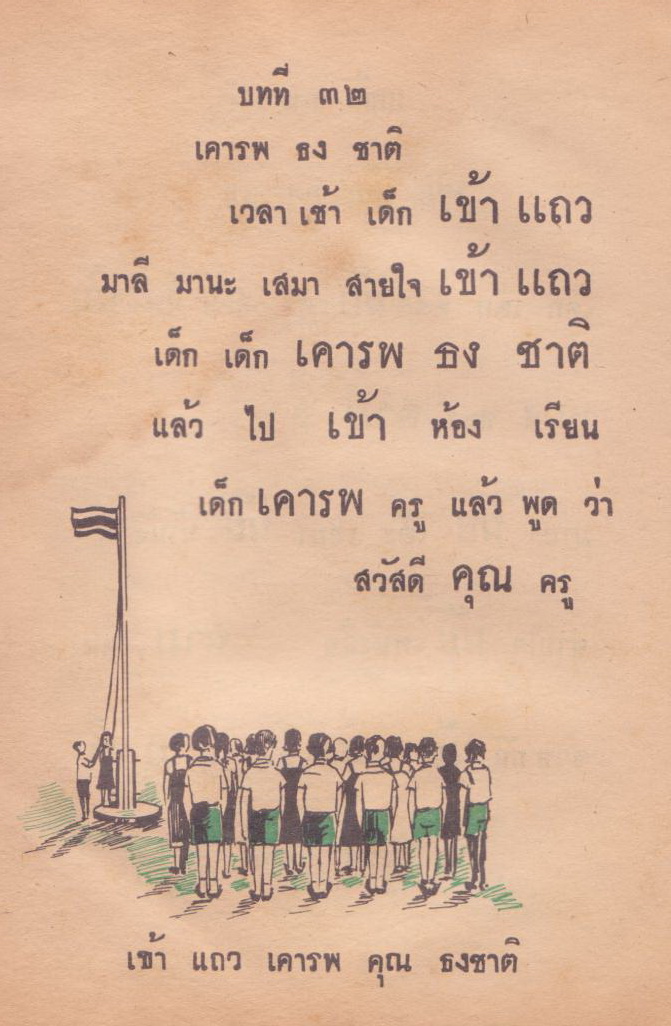 บทที่ ๓๒
เคารพ ธง ชาติ
เวลา เช้า เด็ก เข้า แถว
มาลี มานะ เสมา สายใจ เข้า แถว
เด็ก เด็ก เคารพ ธง ชาติ
แล้ว ไป เข้า ห้อง เรียน
เด็ก เคารพ ครู แล้ว พูด ว่า
สวัสดี คุณ ครู
เข้า แถว เคารพ คุณ ธงชาติ